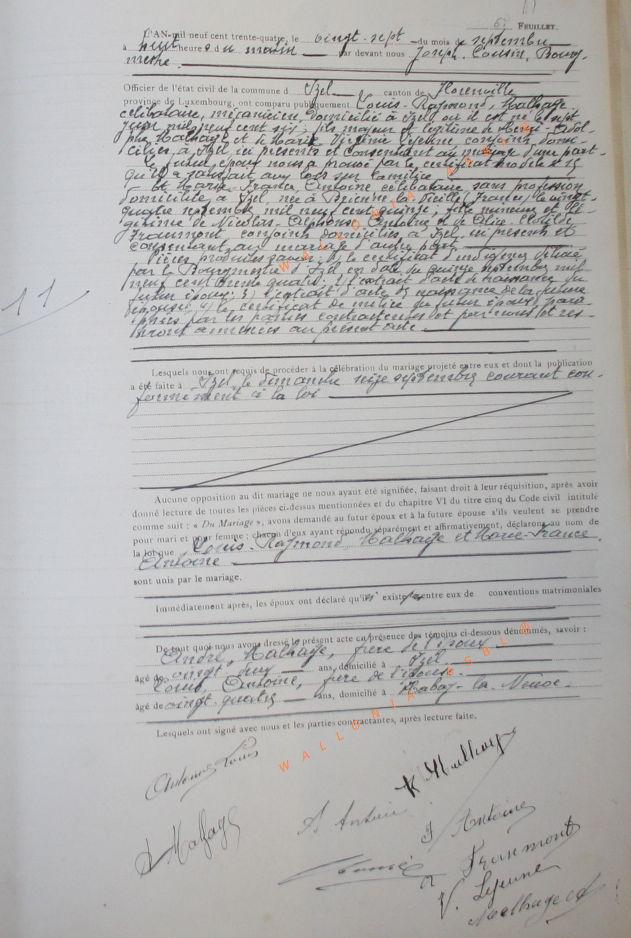 FEUILLET.
L'AN mil neuf cent trente-quatre, le vingt-sept du mois de septembre
à huit heures du matin par devant nous Joseph Cousin, Bourg-
mestre
Officier de l'état civil de la commune d Izel canton de Florenville
province de Luxembourg, ont comparu publiquement Louis-Raymond, Malhage
célibataire, mécanicien, domicilié à Izel où il est né le sept
juin mil neuf cent six; fils majeur et légitime de Adol-
phe Malhage et de Marie Virginie Lejeune conjoints domi-
ciliés à Izel ici présents et consentant au mariage d'une part
le futur époux nous a prouvé par le certificat modèle
qu'il a satisfait aux lois sur la milice
Et Marie-France, Antoine célibataire sans profession
domiciliée à Izel, née à Brienne la Vieille (France) le vingt-
quatre novembre mil neuf cent quinze; fille mineure et lé-
gitime de Nicolas-Alphonse Antoine et de
Fraumont conjoints domiciliés à Izel ici présents et
consentant au mariage d'autre part
Pièces produites savoir: 1) le certificat d'indigence délivré
par le Bourgmestre d'Izel en date du quinze septembre mil
neuf cent trente quatre; 2) l'extrait d'acte de naissance du
futur époux; 3) l'extrait d'acte de naissance de la future
épouse; 4) le certificat de milice du futur époux para-
phées par les parties contractantes et par nous et res-
teront annexées au présent acte
11
Lesquels nous ont requis de procéder à la célébration du mariage projeté entre eux et dont la publication
a été faite à Izel, le dimanche seize septembre courant con-
formément à la loi
Aucune opposition au dit mariage ne nous ayant été signifiée, faisant droit à leur réquisition, après avoir
donné lecture de toutes les pièces ci-dessus mentionnées et du chapitre VI du titre cinq du Code civil intitulé
comme suit : « Du Mariage », avons demandé au futur époux et à la future épouse s'ils veulent se prendre
pour mari et pour femme : chacun d'eux ayant répondu séparément et affirmativement, déclarons au nom de
la loi que Louis-Raymond, Malhage et Marie-France,
Antoine
sont unis par le mariage.
Immédiatement après, les époux ont déclaré qu'il n'existe pas entre eux de conventions matrimoniales
De tout quoi nous avons dressé le présent acte en présence des témoins ci-dessous dénommés, savoir :
André, Malhage, frère de l'époux
âgé de vingt deux ans, domicilié à Izel
Louis, Antoine, frère de l'épouse
âgé de vingt-quatre ans, domicilié à Habay-la-Neuve
Lesquels ont signé avec nous et les parties contractantes, après lecture faite.
Antoine Louis
R Malhage
A Malhage
A Antoine
F Antoine
Fraumont
V. Lejeune
Malhage Ad
WALLONIA ASBL ®
WALLONIA ASBL ®